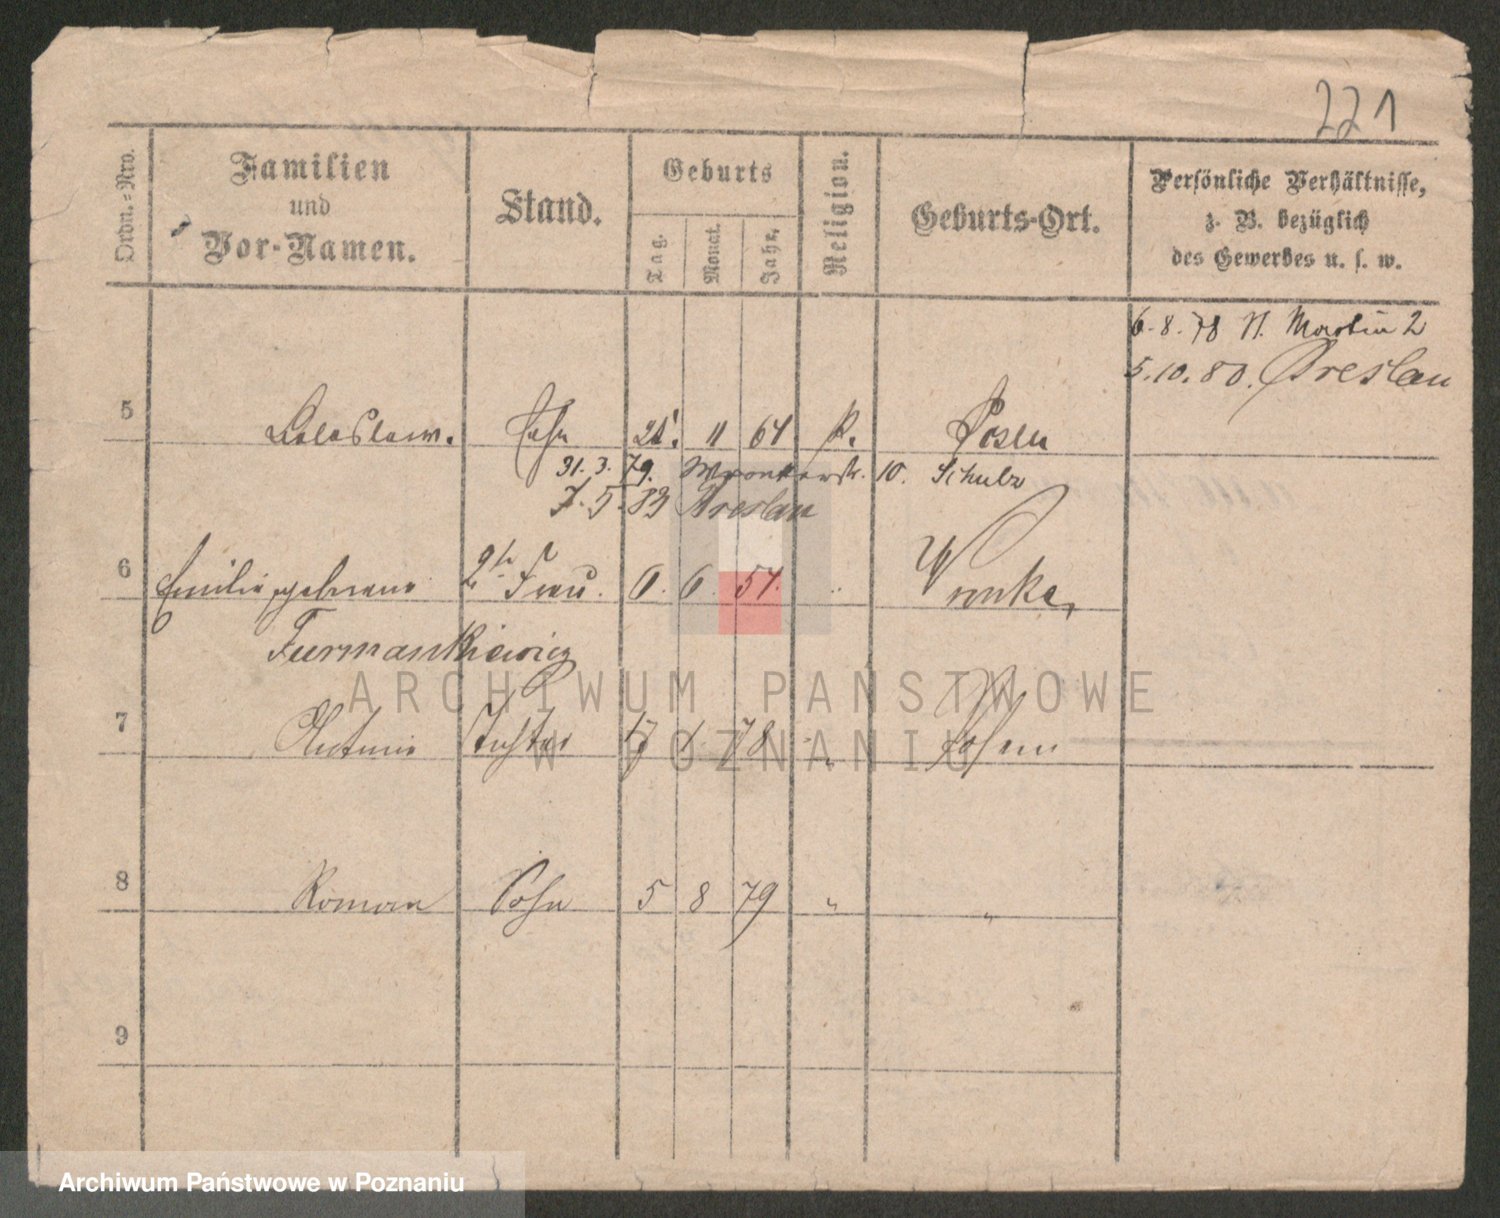 221
Ordn.=Nro.
Familien
und
Vor-Namen.
Stand.
Geburts
Tag.
Monat.
Jahr.
Religion.
Geburts-Ort.
Persönliche Verhältnisse,
z. B. bezüglich
des Gewerbes u. s. w.
6. 8. 78 St. Martin 2
5. 10. 80. Breslau
5 Boleslaw. Sohn 11 64 k. Posen
31. 3. 79. Wronkerstr. 10. Schulz
7. 5. 83 Breslau
6 Emilie geborene 2te Frau. 6. 6. 54. Wronke,
Furmankiewicz
7 Antonie Tochter 17 1 78 Posen
8 Roman Sohn 5 8 79 " "
9
ARCHIWUM PAŃSTWOWE
W POZNANIU
Archiwum Państwowe w Poznaniu